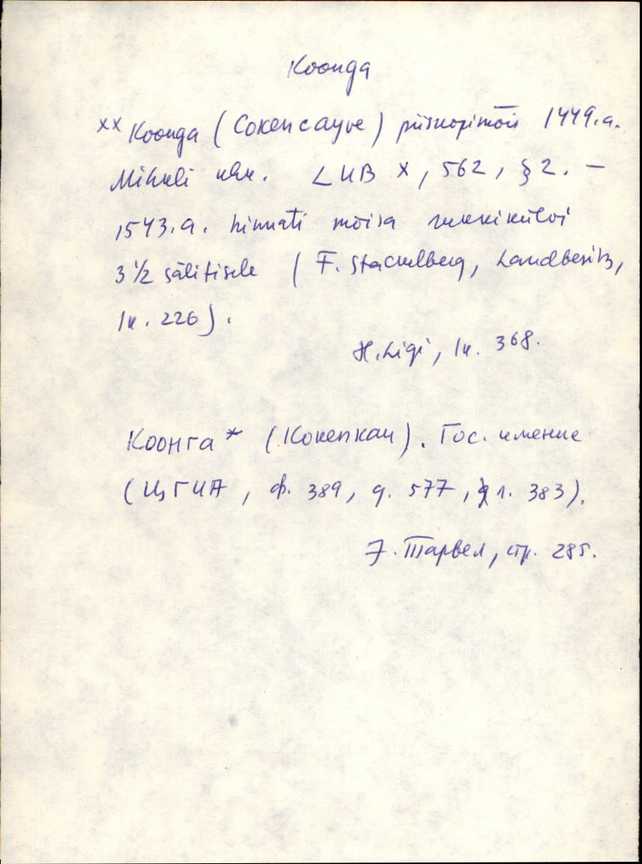 Koonga
xx Koonga (Cokencayve) piisnopimõis 1449.a.
Mihkli khk. LUB X, 562, § 2. —
1543.a. hinnati mõisa
3 1/2 säilitisele (F. Stackelberg, Landbesitz,
lk. 226).
H. Ligi, lk. 368.
Коонга* (Кокенкау). Гос. имение
(ЦГИА, ф. 389, д. 577, л. 383).
Э. Тарвел, стр. 285.